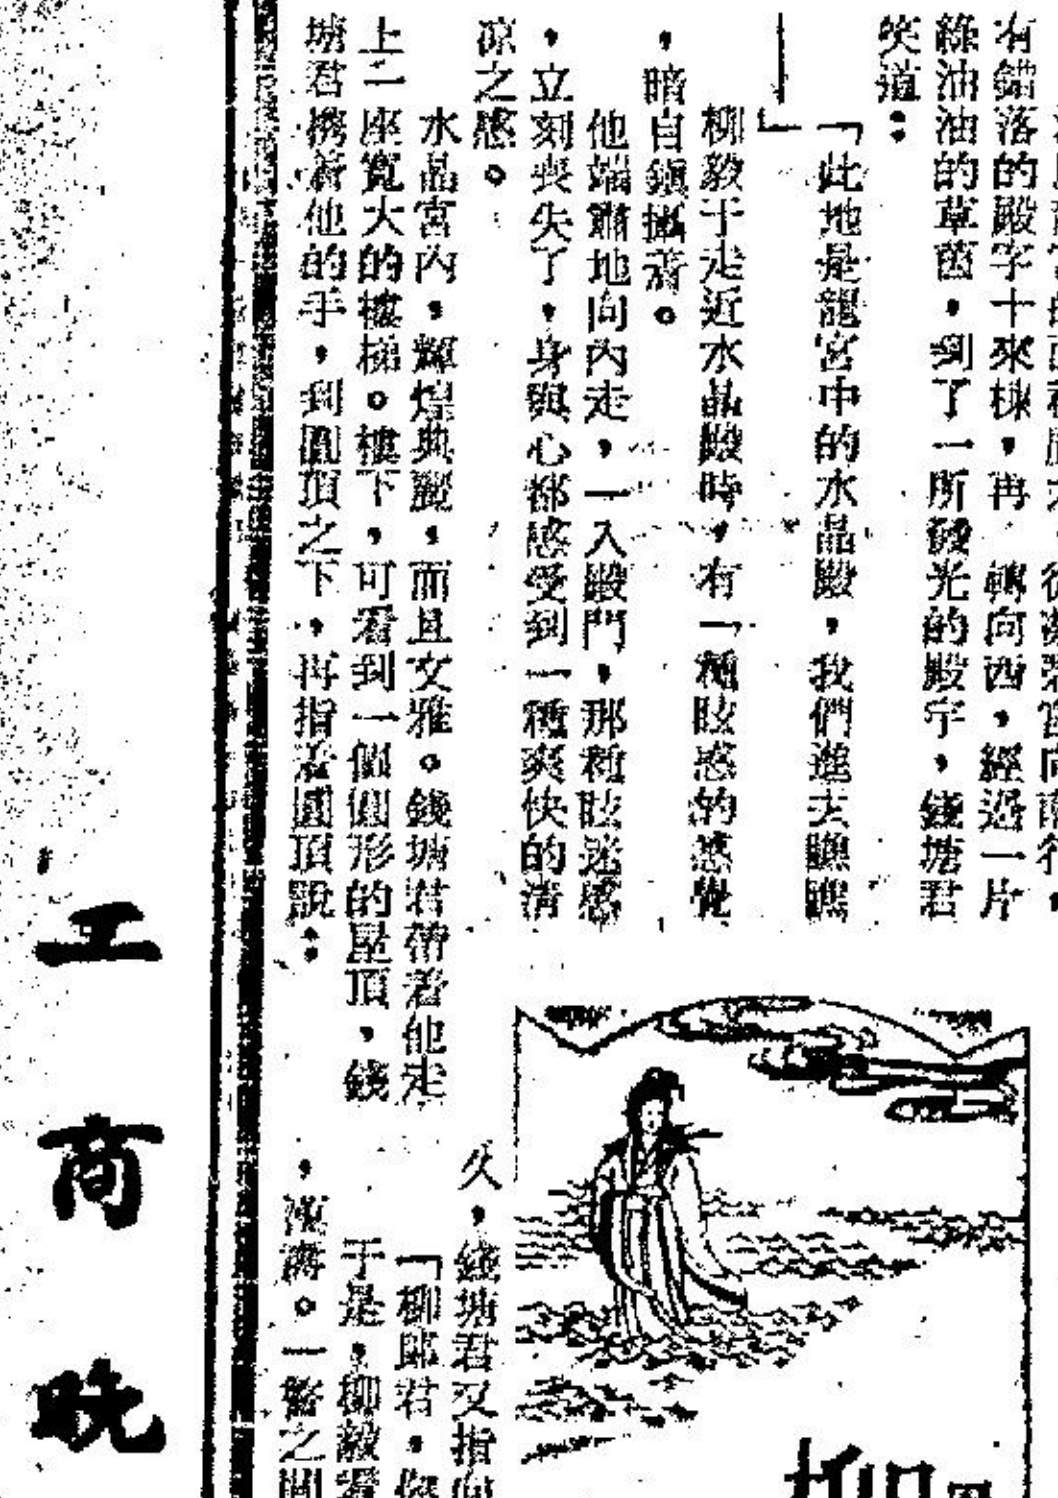 有錯落的殿宇十來棟，再　轉向西，經過一片
綠油油的草茵，到了一所發光的殿宇，錢塘君
笑道：
「此地是龍宮中的水晶殿，我們進去瞧瞧
」
柳毅于走近水晶殿時，有一種眩惑的感覺
，暗自鎮攝着。
他端肅地向內走，一入殿門，那種眩迷感
，立刻喪失了，身與心都感受到一種爽快的清
凉之感。
水晶宮內，輝煌典麗，而且文雅。錢塘君帶着他走
上二座寬大的樓梯。樓下，可看到一個圓形的屋頂，錢
塘君携着他的手，到圓頂之下，再指着圓頂說：
久，錢塘君又指向
「柳郎君，
于是，柳毅看
。一
柳
工商晚